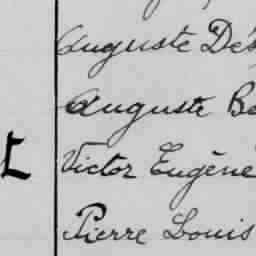 Auguste Dés
Auguste Be
Victor Eugène
Pierre Louis